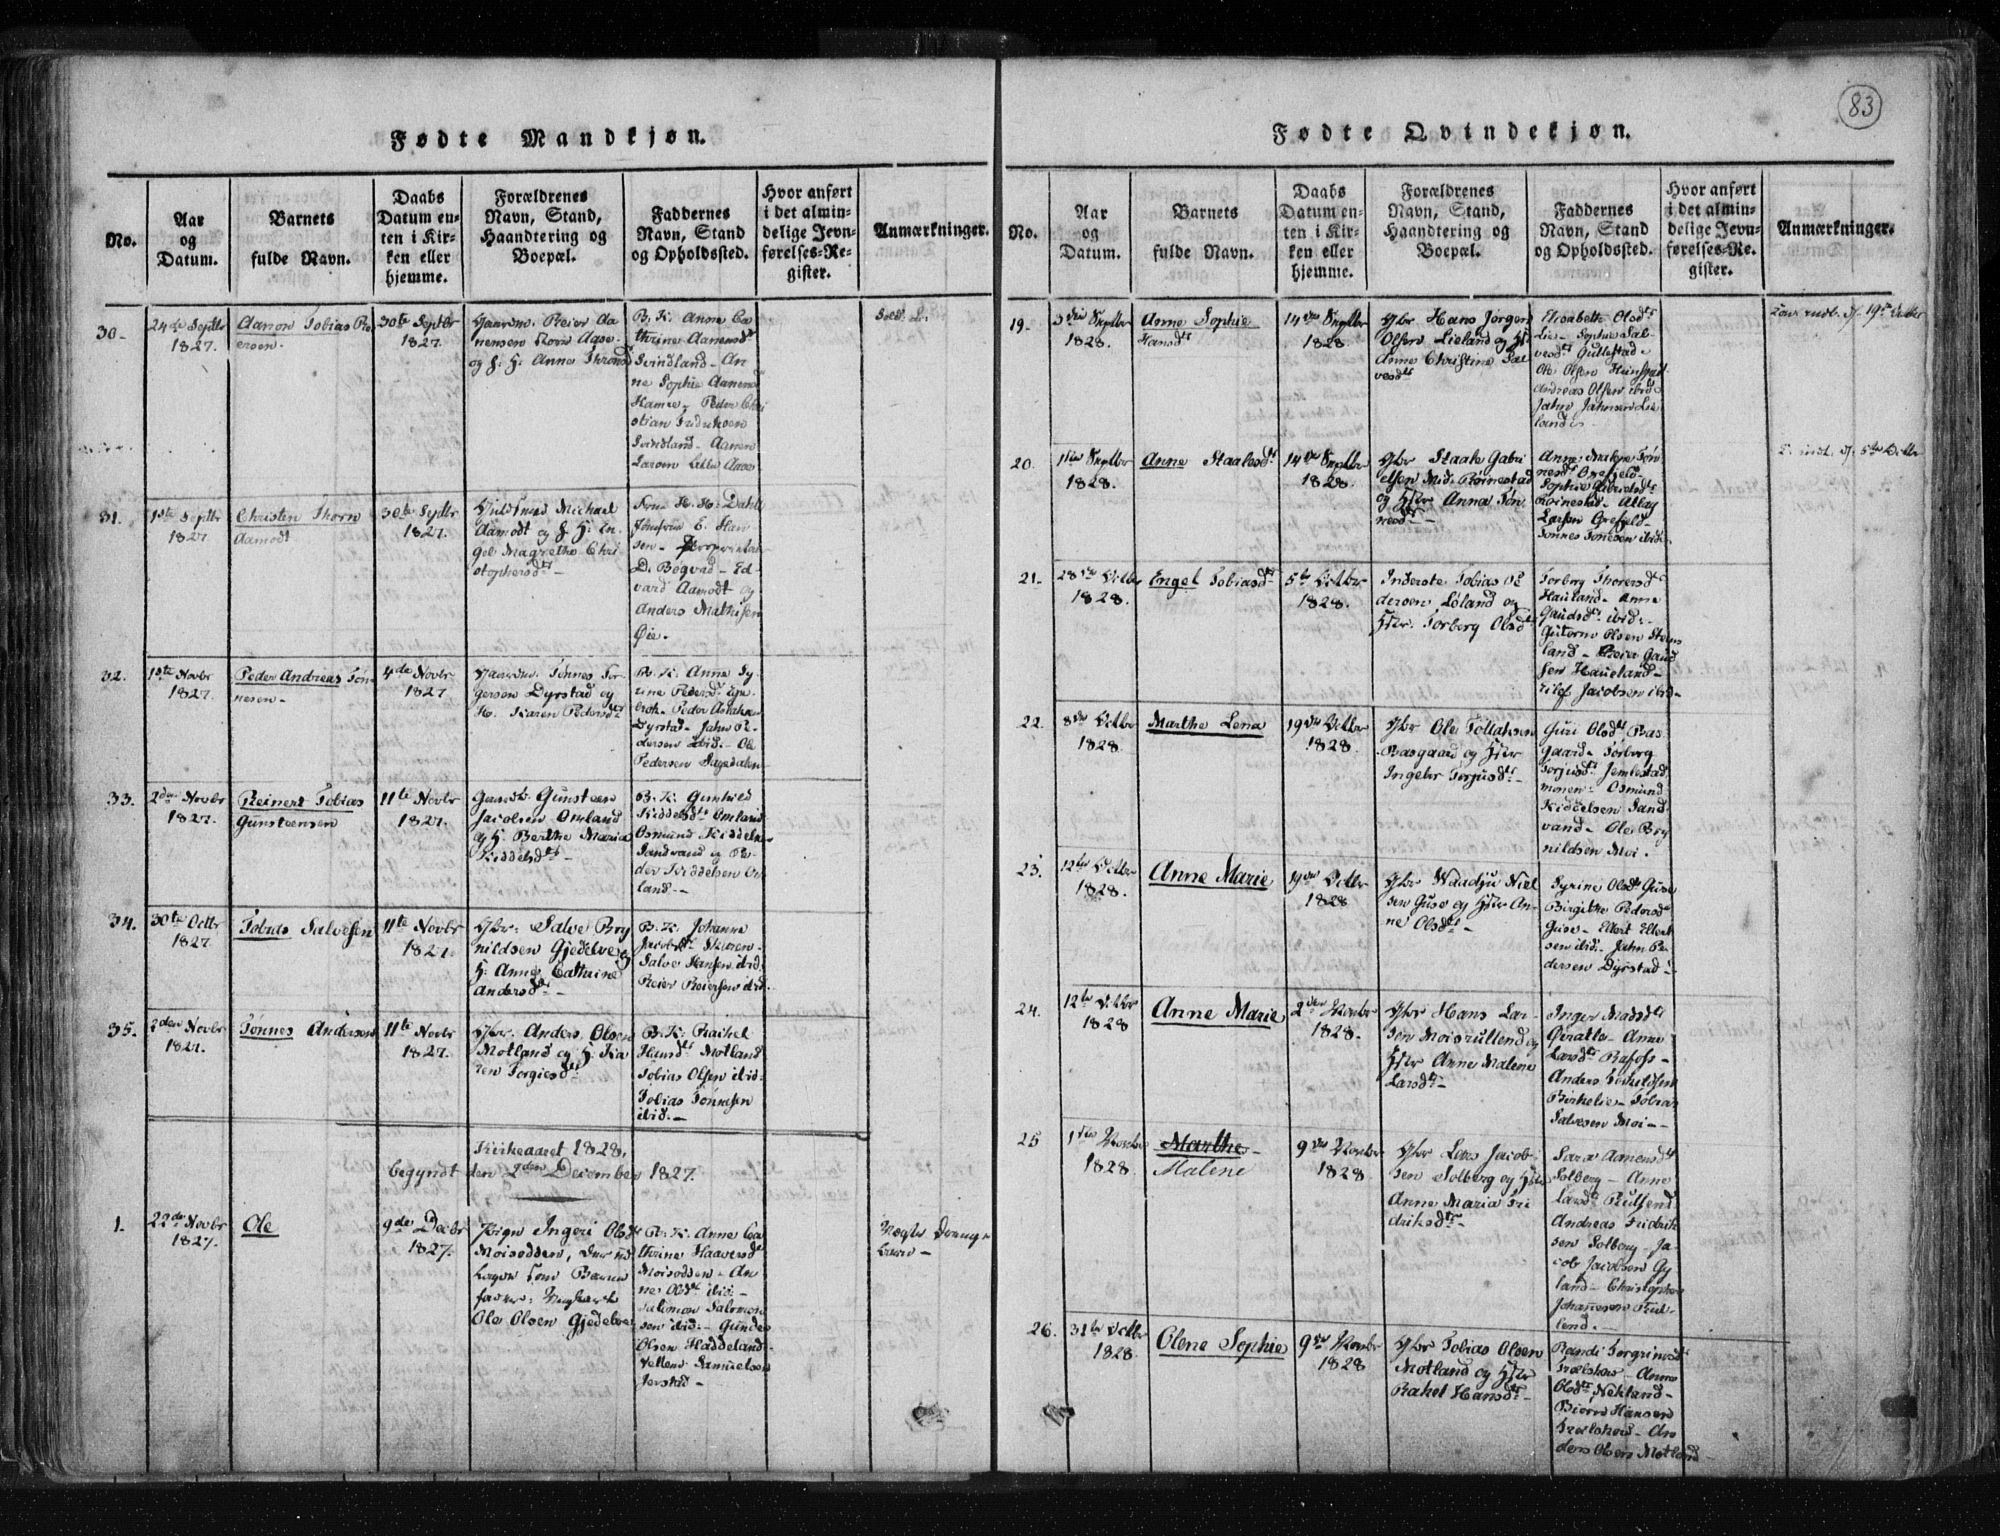 83
Fødte Mandkjøn.
No.
Aar
og
Datum.
Barnets
fulde Navn.
Daabs
Datum en-
ten i Kir-
ken eller
hjemme.
Forældrenes
Navn, Stand,
Haandtering og
Boepæl.
Faddernes
Navn, Stand
og Opholdssted.
Hvor anført
i det almin-
delige Jevn-
førelses-Re-
gister.
Anmærkninger.
30.
24de Septbr
1827.
Aanon Tobias Re
ersen.
30te Septbr
1827.
Reier Aa
nensen Aase
og H. Anne
B. K. Anne Ca
thrine Aanensd
Svindland - An
ne Sophie Aanens
Hamre - Peder Chri
stian Fredriksen
Svindland - Aanen
Larsen Aase
31.
1ste Septbr
1827
Christen Thorn
Aamodt
30te Septbr
1827.
Michael
Aamodt og H. En
gel Magrethe Chri
stophersdtr
H. H. Dahl
Jomfrue C. Han
sen - Proprietair
D. Bogvad - Ed
vard Aamodt og
Anders Mathisen
Øie.
32.
1ste Novbr
1827.
Peder Andreas Tøn
nesen -
4de Novbr
1827
Tønnes Tor
gersen Dyrstad og
H. Karen Pedersdtr
B. K. Anne Sy
rine Pedersd
Peder
Dyrstad - Jahn Pe
dersen ibid. - Ole
Pedersen Lagedalen
33.
2den Novbr
1827.
Reinert Tobias
Gunsteensen
11te Novbr
1827.
Gaardb. Gunsteen
Jacobsen Omland
og H. Berthe Maria
Kiddelsdtr -
B. K. Gunhild
Kiddelsdtr Omland
Osmund Kiddels
Sandvand og Pe
der Kiddelsen Om
land -
34.
30te Octbr
1827
Tobias Salvesen
11te Novbr
1827.
Gbr: Salve Bry
nildsen Gjedelve og
H. Anne Cathrine
Andersdtr -
B. K. Johanne
Jacobsdtr
Salve Hansen ibid
Reier Reiersen ibid.
35.
2den Novbr
1827.
Tønnes Andersen
11te Novbr
1827.
Gbr: Anders Olsen
Motland og H. Ka
ren Torgiesdtr
B. K. Rachel
Hansdtr Motland
Tobias Olsen ibid.
Tobias Tønnesen
ibid. -
Kirkeaaret 1828.
begyndt den 2den December 1827.
1.
22de Novbr
1827.
Ole
9de Decbr
1827.
Pigen Ingeri Olsdtr
Moisodden, der ud
lagde som Barne
fader: Ungkarl
Ole Olsen Gjedelve
B. K. Anne Ca
thrine Haaversdtr
Moisodden - An
ne Olsdtr ibid -
Salomon Salomon
sen ibid - Gunder
Olsen Haddeland
Vetleus Samuelsen
Jerstad -
Uægte Drenge
barn -
Fødte Qvindekjøn.
No.
Aar
og
Datum.
Barnets
fulde Navn.
Daabs
Datum en-
ten i Kir-
ken eller
hjemme.
Forældrenes
Navn, Stand,
Haandtering og
Boepæl.
Faddernes
Navn, Stand
og Opholdssted.
Hvor anført
i det almin-
delige Jevn-
førelses-Re-
gister.
Anmærkninger.
19.
3die Septbr
1828.
Anne Sophie
Hansdtr
14de Septbr
1828
Gbr Hans Jørgen
Olsen Lieland og Hstr
Anne Christine Sal
vesdtr
Elisabeth Olsdtr
Lie - Sophie Sal
vesdtr Gullestad -
Ole Olsen
Andreas Olsen ibid
Jahn Jahnsen Lie
land -
indt. d. 19de Octbr
20.
1ste Septbr
1828.
Anne Staalesdtr
14de Septbr
1828.
Gbr Staale Gabri
elsen Mid. Røinestad
og Hstr Anna Tøn
nesdtr -
Anne Malene Tøn
nesdtr Grefield
Sophie Gabrielsdtr
Røinestad - Atlag
Larsen Grefield -
Tønnes Tønesen ibid.
indt. d. 5te Octbr
21.
28de Octbr
1828.
Engel Tobiasdtr
5te Octbr
1828.
Inderste Tobias Pe
dersen Løland og
Hstr. Torborg Olsdtr
Torborg Thorersdtr
Hauland - Anne
Gaudsdtr ibid. -
Gutorm Olsen Steins
land - Reier Gaud
sen Haueland -
Jacobsen ibid -
22.
8de Octbr
1828.
Marthe Lena
19de Octbr
1828.
Gbr Ole Tollaksen
Basgaard og Hstr
Ingebor Torjusdtr -
Guri Olsdtr Bas
gaard - Torborg
Torjusdtr Jemlestad
monen - Osmund
Kiddelsen Sand
vand - Ole Bry
nildsen Moi.
23.
12te Octbr
1828.
Anne Marie
19de Octbr
1828
Gbr Waadju Niel
sen Guse og Hstr An
ne Olsdtr -
Syrine Olsdtr Guse
Birgithe Pedersdtr
Guse - Ellert Ellert
sen ibid - Jahn Pe
dersen Dyrstad -
24.
12te Octbr
1828
Anne Marie
2den Novbr
1828.
Gbr Hans Lar
sen Moisrullend og
Hstr Anne Malene
Larsdtr -
Inger Madsdtr
Qvatle - Anne
Larsdtr Bafoss -
Anders Torkildsen
Birkelie - Tobias
Salvesen Moi -
25
1ste Novbr
1828.
Marthe
Malene
9de Novbr
1828
Gbr Lars Jacob
sen Solberg og Hstr
Anne Maria Fri
driksdtr -
Sara Aanensdtr
Solberg - Anne
Larsdtr Rullend
Andreas Fridrik
sen Solberg - Ja
cob Jacobsen Gy
land - Christopher
Johannesen Rul
lend. -
26.
31te Octbr
1828
Olene Sophie
9de Novbr
1828
Gbr Tobias Olsen
Motland og Hstr
Rakel Hansdtr -
Randi Torgrimsdtr
Træelshei - Anne
Olsdtr Nekland -
Biørn Hansen
Træelshei - An
ders Olsen Motland -